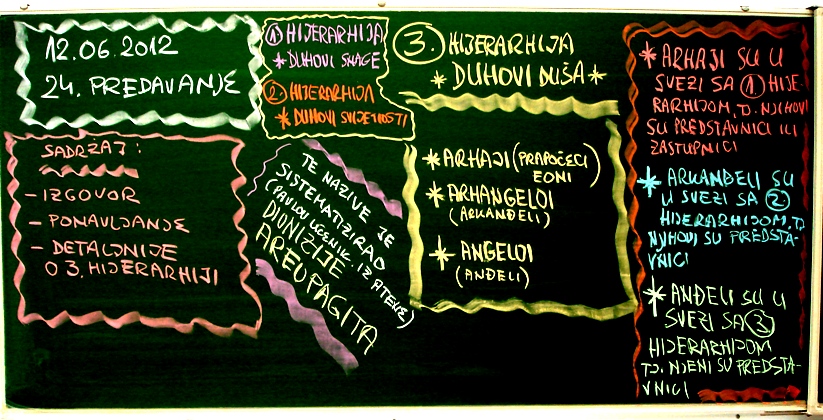 12.06.2012
24. PREDAVANJE
SADRŽAJ:
- IZGOVOR
- PONAVLJANJE
- DETALJNIJE
O 3. HIJERARHIJI
1 HIJERARHIJA
* DUHOVI SNAGE
2 HIJERARHIJA
* DUHOVI SVJETLOSTI
TE NAZIVE JE
SISTEMATIZIRAO
(PAVLOV UČENIK IZ ATENE)
DIONIZIJE
AREOPAGITA
3. HIJERARHIJA
* DUHOVI DUŠA *
* ARHAJI (PRAPOČECI
EONI)
* ARHANGELOI
(ARKANĐELI)
* ANGELOI
(ANĐELI)
* ARHAJI SU U
SVEZI SA 1 HIJE-
RARHIJOM, TJ. NJIHOVI
SU PREDSTAVNICI ILI
ZASTUPNICI
* ARKANĐELI SU
U SVEZI SA 2
HIJERARHIJOM, TJ.
NJIHOVI SU PREDSTA-
VNICI
* ANĐELI SU U
SVEZI SA 3
HIJERARHIJOM
TJ. NJENI SU PREDSTA-
VNICI